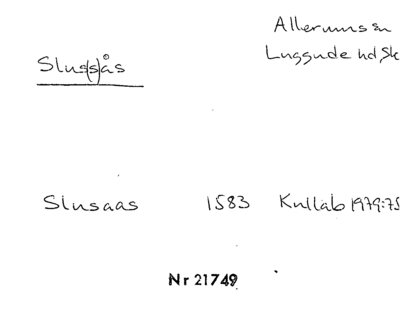 Allerums sn
Luggude hd, Sk
Slus(s)ås
Slusaas 1583 Kullab 1979:75
Nr 21749